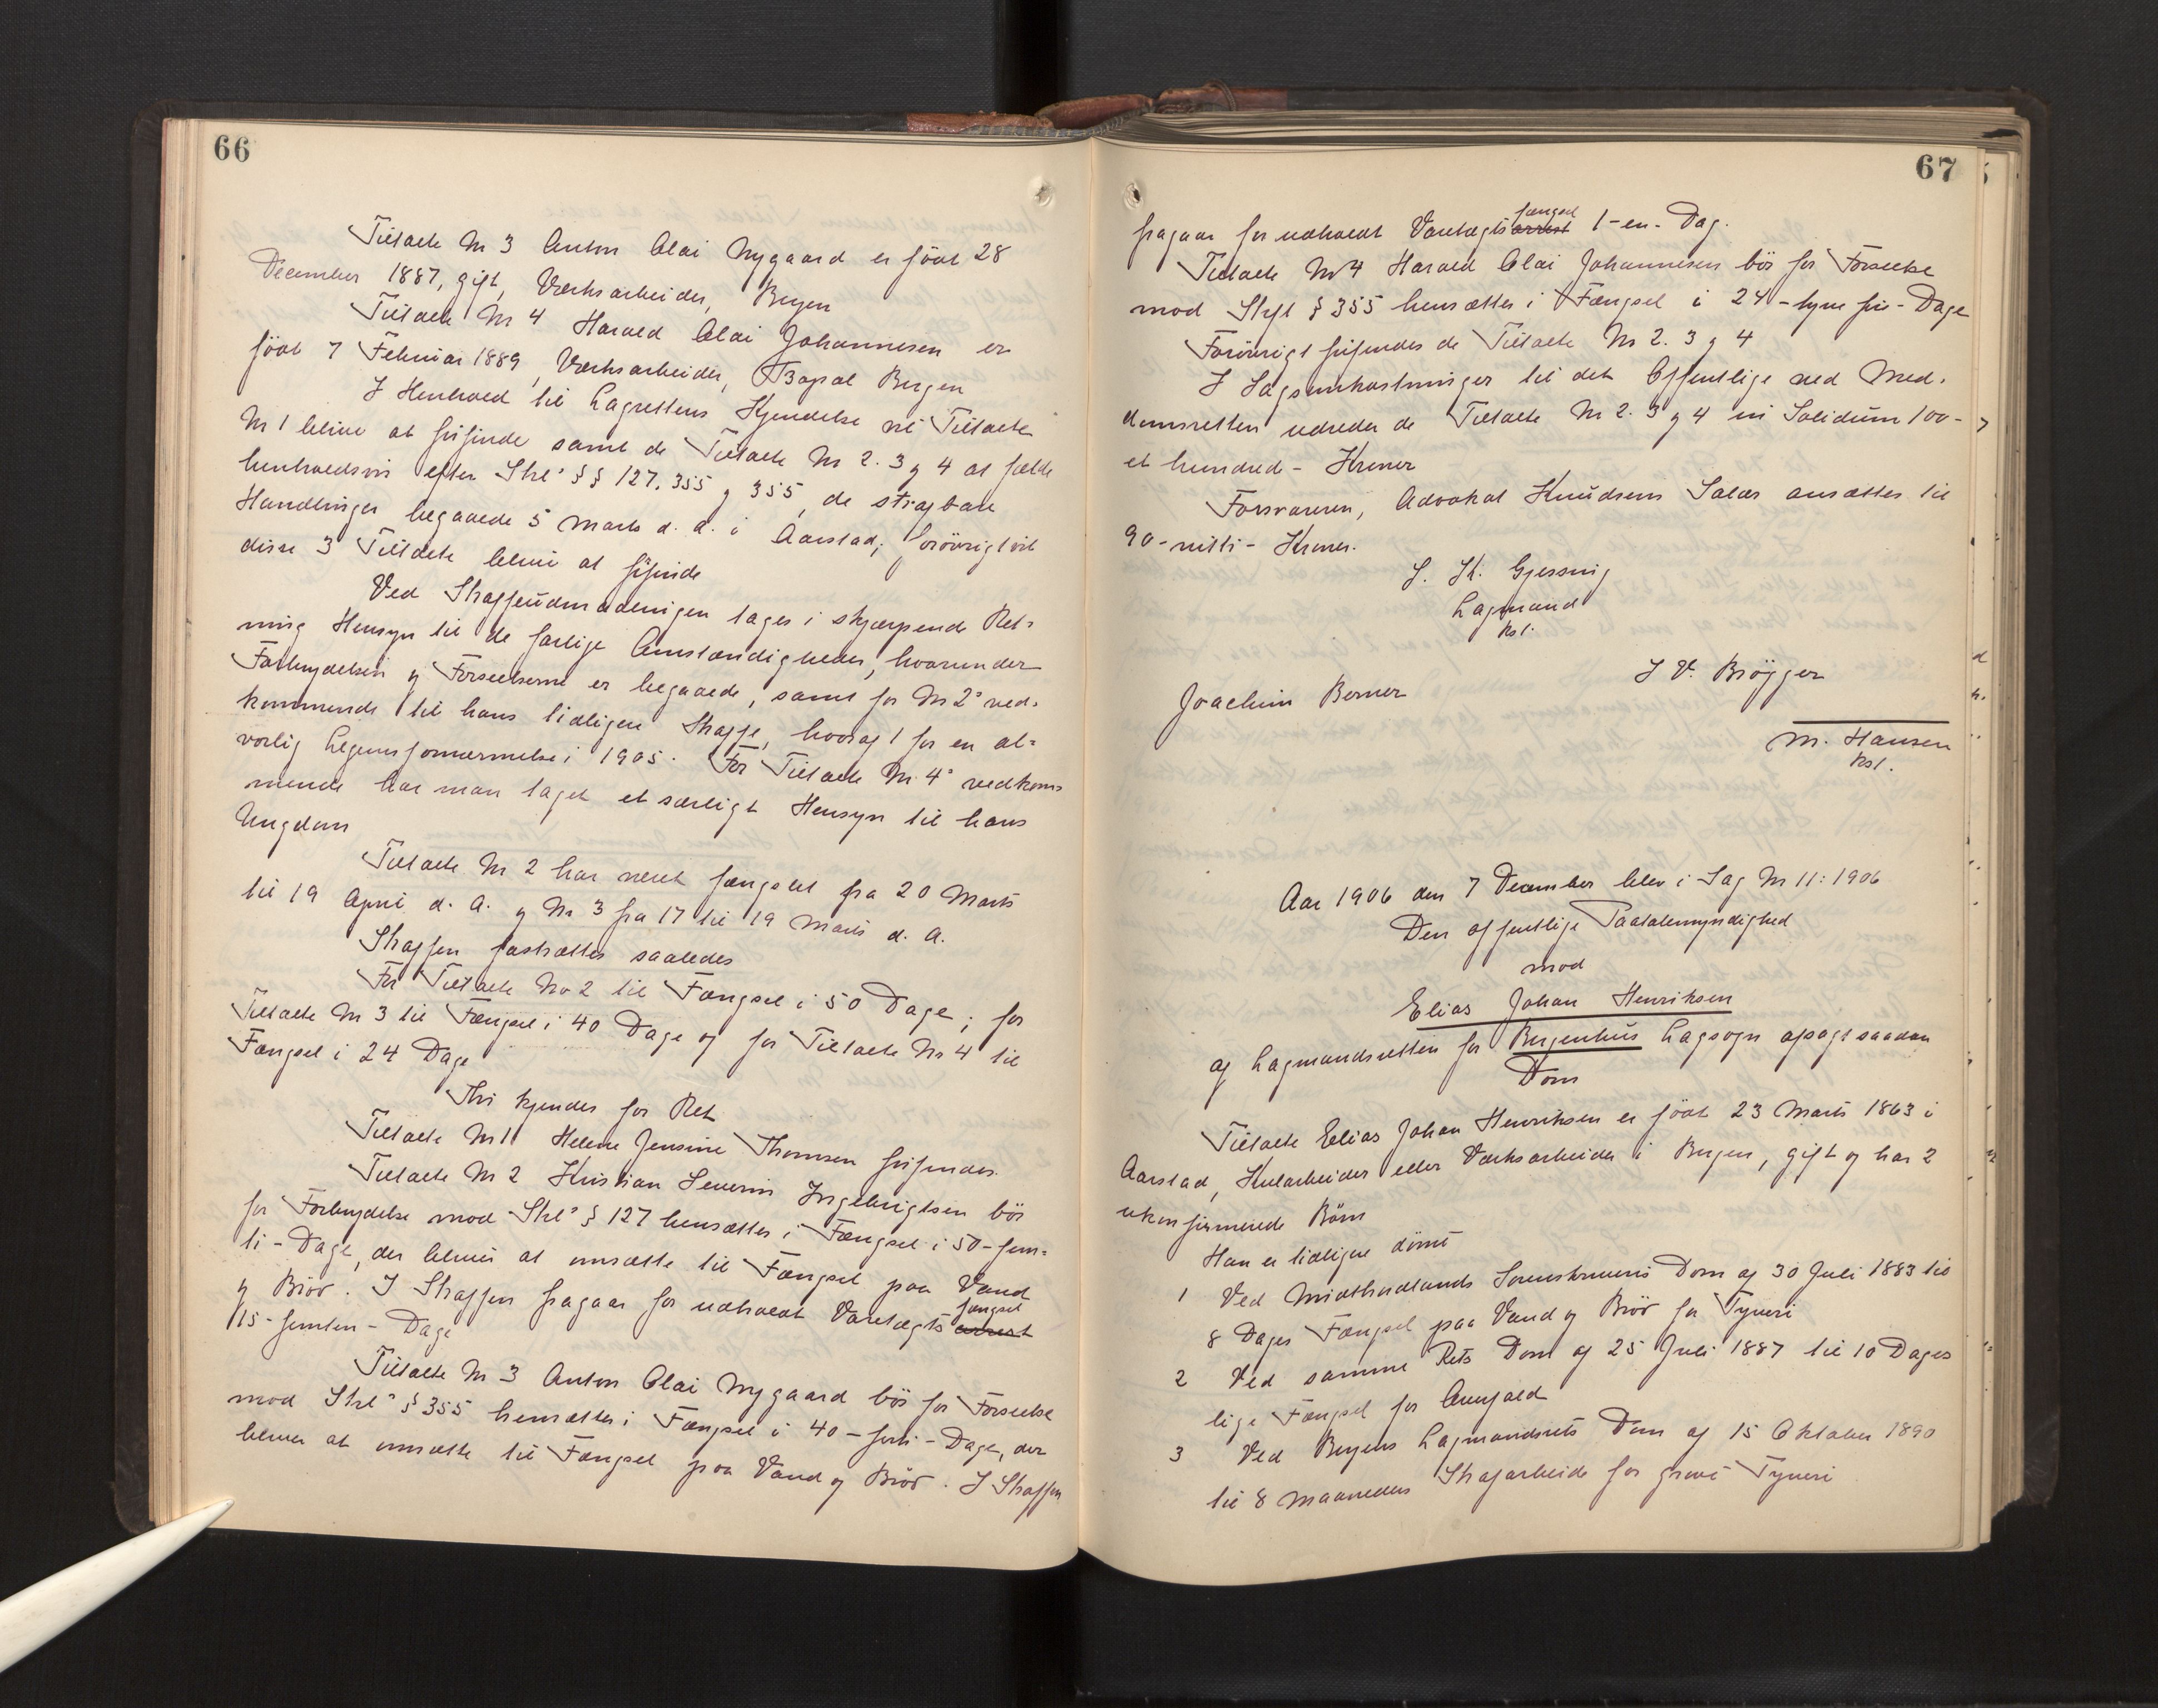 66
Tiltalte Nr 3 Anton Olai Nygaard er født 28
December 1887, gift, Værksarbeider, Bergen
Tiltalte Nr 4 Harald Olai Johannesen er
født 7 Februar 1889, Værksarbeider, Bopæl Bergen
I Henhold til Lagrettens Kjendelse vil Tiltalte
Nr 1 blive at frifinde samt de Tiltalte Nr 2. 3 og 4 at fælde
henholdsvis efter Strl's §§ 127, 355 og 355, de strafbare
Handlinger begaaede 5 Marts d. A. i Aarstad; forøvrigt vil
disse 3 Tiltalte blive at frifinde
Ved Straffeudmaalingen tages i skjærpende Ret-
ning Hensyn til de farlige Omstændigheder, hvorunder
Forbrydelsen og Forseelserne er begaaede, samt for Nr 2's ved-
kommende til hans tidligere Straffe, hvoraf 1 for en al-
vorlig Legemsfornærmelse i 1905. For Tiltalte Nr. 4's vedkom-
mende har man taget et særligt Hensyn til hans
Ungdom
Tiltalte Nr 2 har været fængslet fra 20 Marts
til 19 April d. A. og Nr 3 fra 17 til 19 Marts d. A.
Straffen fastsættes saaledes
For Tiltalte No 2 til Fængsel i 50 Dage; for
Tiltalte Nr 3 til Fængsel i 40 Dage og for Tiltalte Nr 4 til
Fængsel i 24 Dage
Thi kjendes for Ret
Tiltalte Nr 1 Helene Jensine Thomsen frifindes.
Tiltalte Nr 2 Kristian Severin Ingebrigtsen bør
for Forbrydelse mod Strl's § 127 hensættes i Fængsel i 50-fem-
ti-Dage, der bliver at omsætte til Fængsel paa Vand
og Brød. I Straffen fragaar for udholdt Varetægts arrest fængsel
15-femten-Dage
Tiltalte Nr 3 Anton Olai Nygaard bør for Forseelse
mod Strl's § 355 hensættes i Fængsel i 40-forti-Dage, der
bliver at omsætte til Fængsel paa Vand og Brød. I Straffen
67
fragaar for udholdt Varetægts arrest fængsel 1-en-Dag.
Tiltalte No 4 Harald Olai Johannesen bør for Forseelse
mod Strfl § 355 hensættes i Fængsel i 24-tyve fire-Dage
Forøvrigt frifindes de Tiltalte Nr 2. 3 og 4
I Sagsomkostninger til det Offentlige ved Med-
domsretten udreder de Tiltalte Nr 2. 3 og 4 in Solidum 100-
et hundred-Kroner
Forsvareren, Advokat Knudsens Salær ansættes til
90-nitti-Kroner.
S. K. Gjessing
Lagmand
kst.
J V. Brøgger
Joachim Berner
M. Hansen
kst.
Aar 1906 den 7 December blev i Sag Nr 11: 1906
Den offentlige Paatalemyndighed
mod
Elias Johan Henriksen
af Lagmandsretten for Bergenhus Lagsogn afsagt saadan
Dom
Tiltalte Elias Johan Henriksen er født 23 Marts 1863 i
Aarstad, Kularbeider eller Værksarbeider i Bergen, gift og har 2
ukonfirmerede Børn
Han er tidligere dømt
1 Ved Midthordlands Sorenskriveris Dom af 30 Juli 1883 til
8 Dages Fængsel paa Vand og Brød for Tyveri
2 Ved samme Rets Dom af 25 Juli 1887 til 10 Dages
lige Fængsel for Overfald
3 Ved Bergens Lagmandsrets Dom af 15 Oktober 1890
til 8 Maaneders Strafarbeide for grovt Tyveri